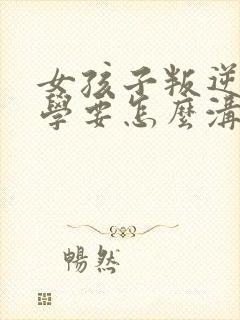 女孩子叛逆
學要怎麼溝
暢然